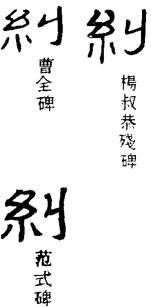 糾
曹全碑
糾
楊叔恭殘碑
糾
范式碑